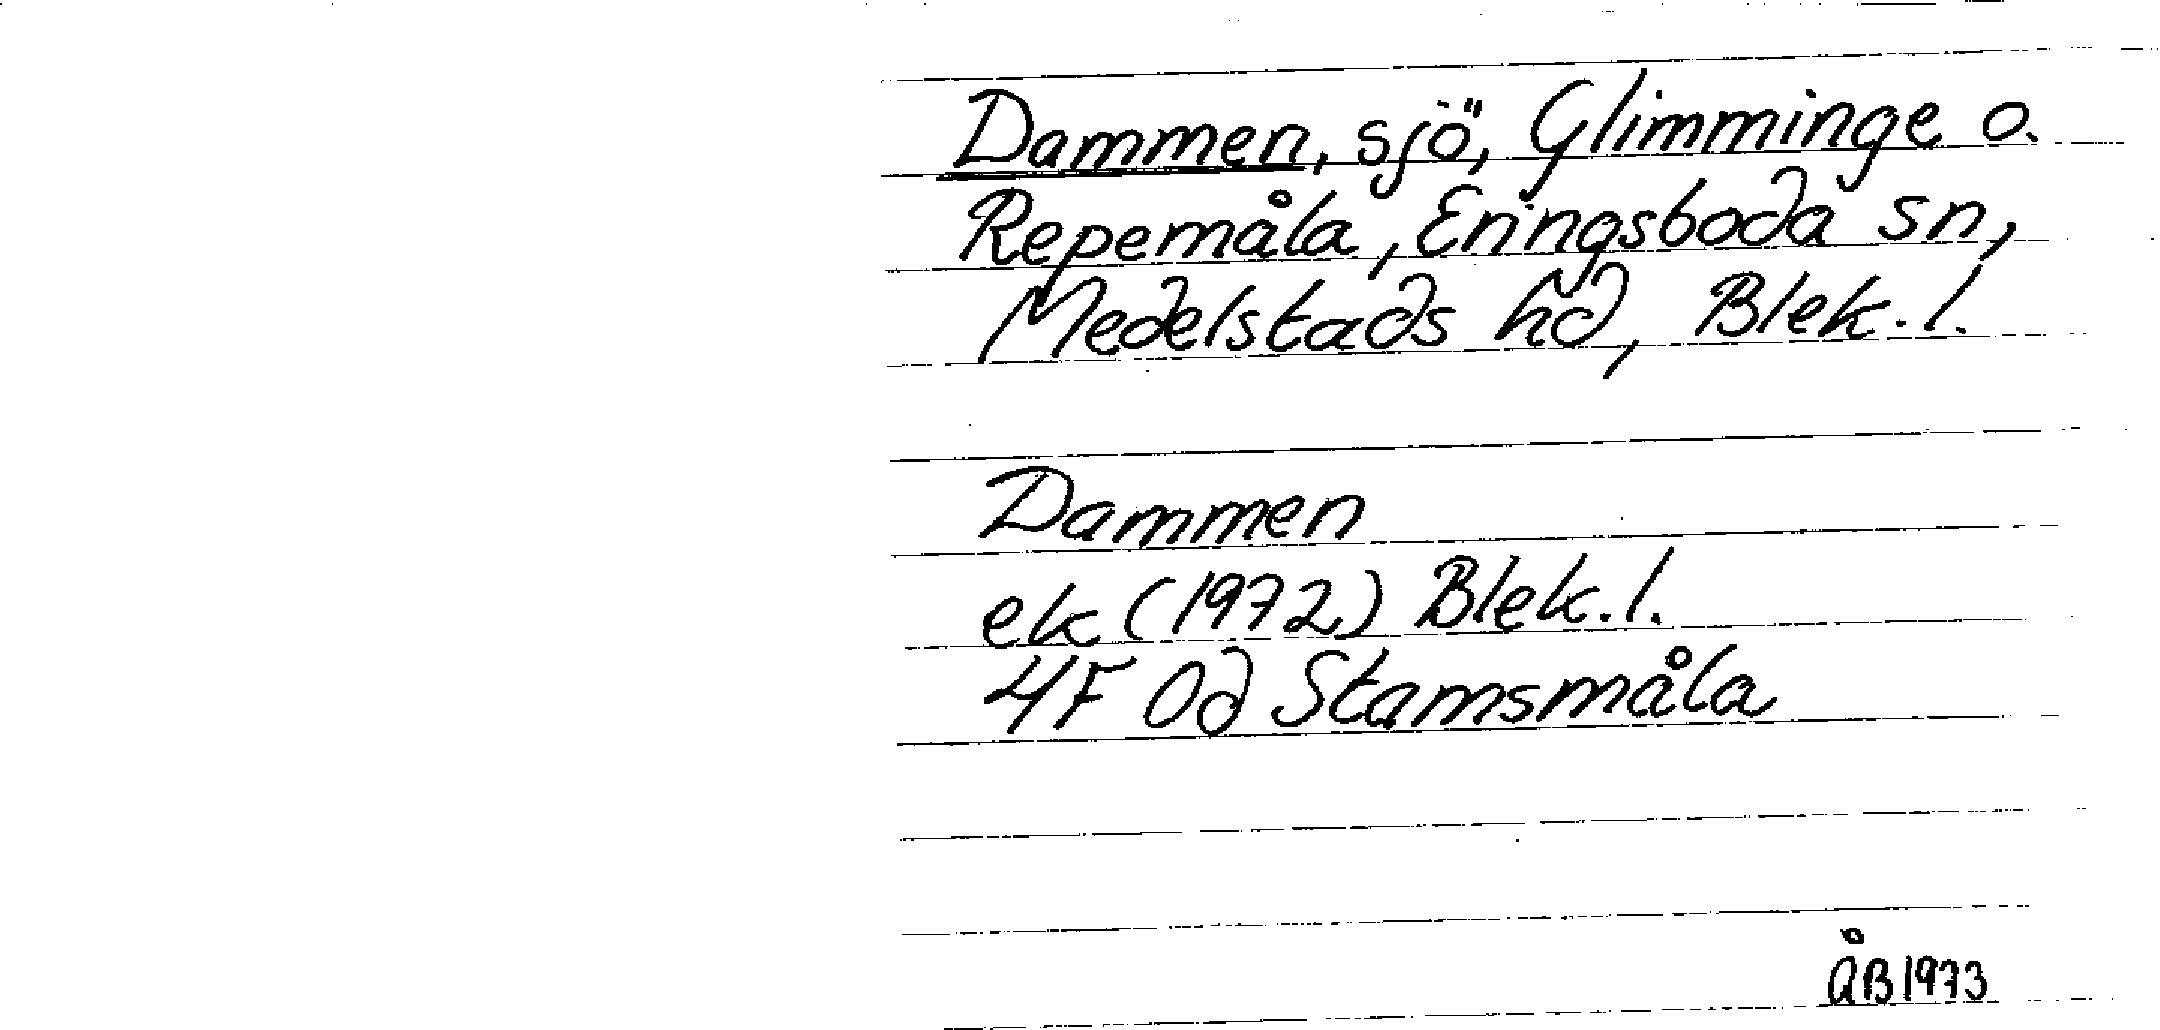 Dammen, sjö, Glimminge o.
Repemåla, Eringsboda sn,
Medelstads hd, Blek. l.
Dammen
ek (1972) Blek. l.
4F 0d Stamsmåla
ÅB 1973